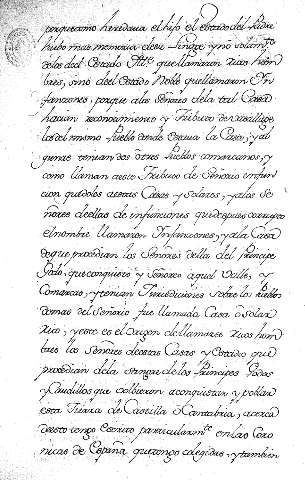 porque como heredava el hijo el estado del Padre
hubo mas memoria de su linage y no solam.te
de los del estado que llamaron ricos hom
bres, sino del estado Noble que llamaron Yn
fanzones, porque a los Señores de la tal Casa
hacian reconocimiento y tributo de vasallage
los del mismo Pueblo donde estava la Casa, y al
gunas tenian dos o tres Pueblos comarcanos, y
como llaman a este tributo de Señorio infur
cion quedolos a estas Casas y Solares, y a los Se
ñores de ellas de infurciones que despues corrupto
el nombre llamaron Ynfanzones, y a la Casa
de que procedian los Señores de ella del Principe
Godo, que conquisto y Señoreo aquel Valle, y
Comarca, y tenian Jurisdiciones sobre los Pueblos
demas del Señorio fue llamada Casa o Solar
rico, y este es el origen de llamarse ricos hom
bres los Señores de estas Casas y estado que
procedian de la sangre de los Principes Godos
y Caudillos que bolvieron a conquistar y poblar
esta tierra de Castilla o Cantabria, acerca
de esto tengo escrito particularm.te en las Coro
nicas de España que tengo colegidas, y tambien